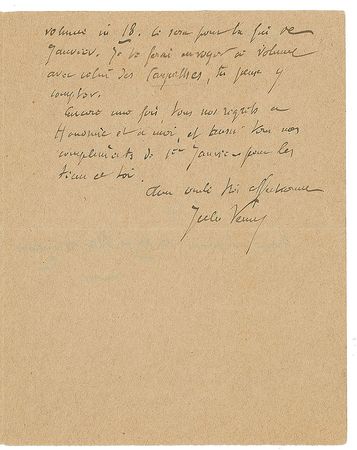 volume in 18. Ce sera pour la fin de
Janvier. Je te ferai envoyer ce volume
avec celui des Carpathes, tu peux y
compter.
Encore une fois, tous nos regrets à
Honorine et à moi, et aussi tous nos
compliments de 1er Janvier pour les
tiens et toi.
Ton affectionné
Jules Verne